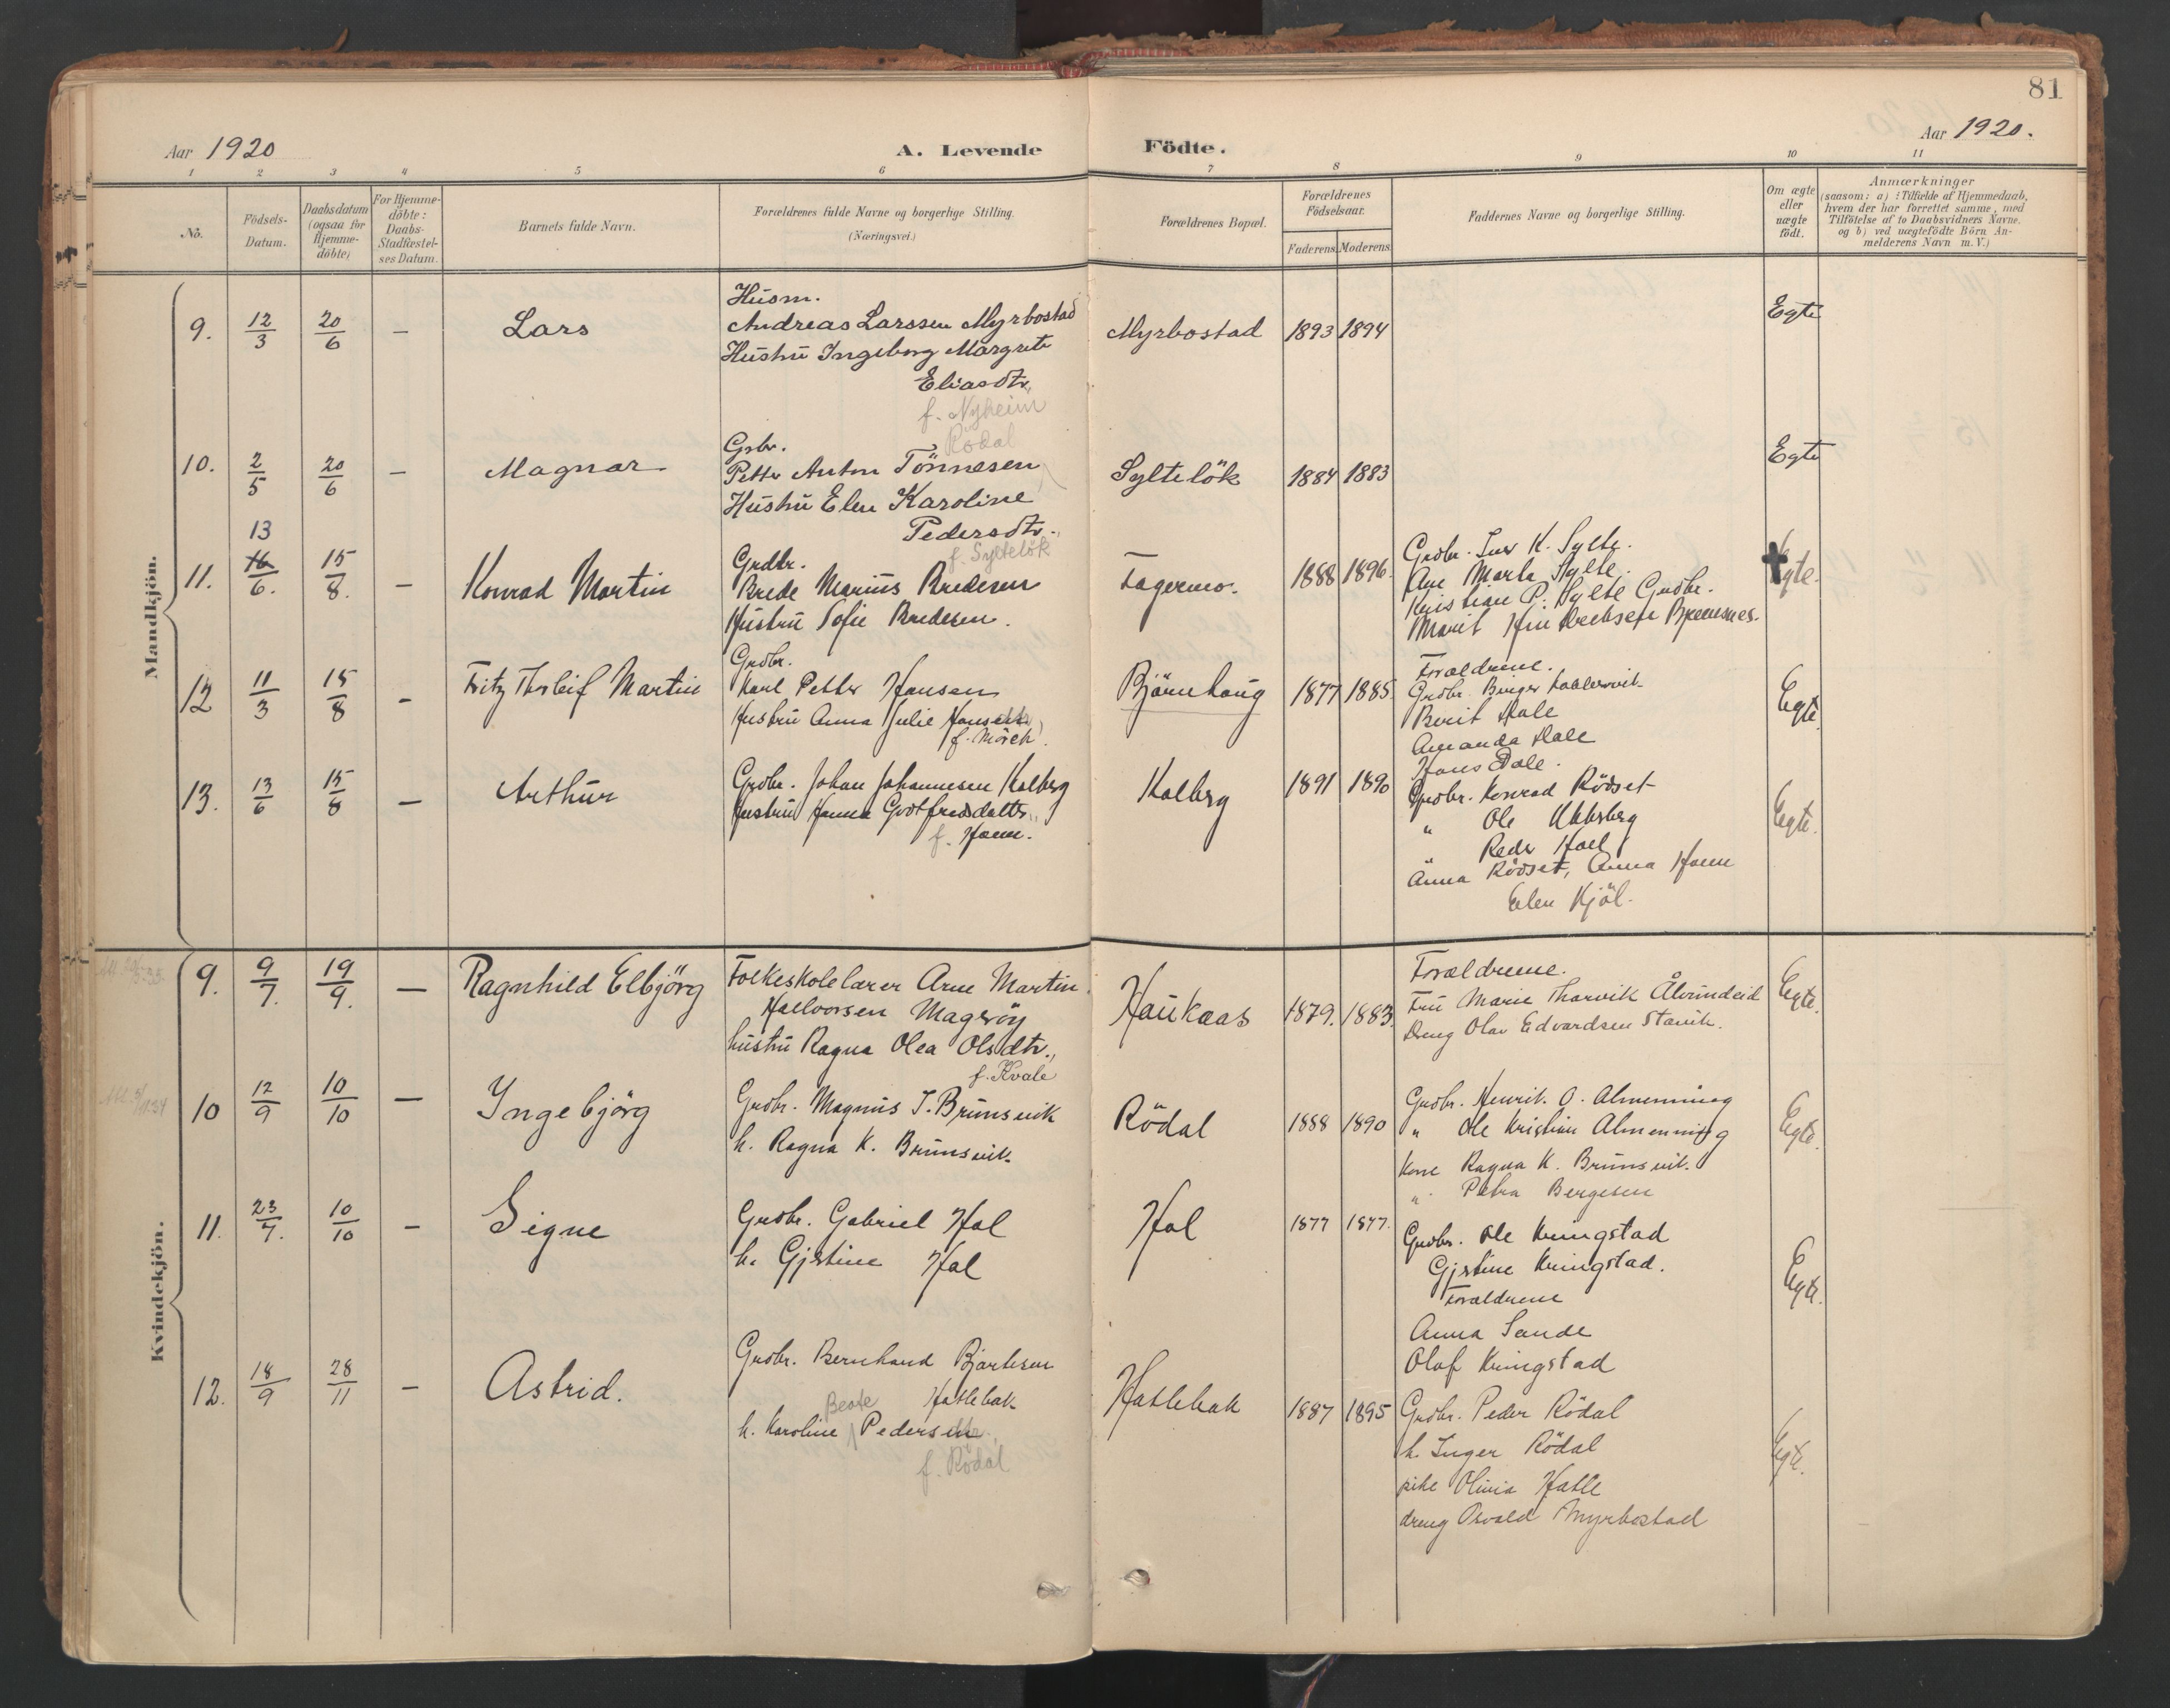 81
Aar 1920
A. Levende
Födte.
Aar 1920.
1 2 3 4 5 6 7 8 9 10 11
No.
Födsels-
Datum.
Daabsdatum
(ogsaa for
Hjemme-
döbte)
For Hjemme-
döbte:
Daabs-
Stadfæstel-
ses Datum.
Barnets fulde Navn.
Forældrenes fulde Navne og borgerlige Stilling.
(Næringsvei.)
Forældrenes Bopæl.
Forældrenes
Födselsaar.
Faderens. Moderens.
Faddernes Navne og borgerlige Stilling.
Om ægte
eller
uægte
födt.
Anmærkninger
(saasom: a) i Tilfælde af Hjemmedaab,
hvem der har forrettet samme, med
Tilföielse af to Daabsvidners Navne.
og b) ved uægtefödte Börn An-
melderens Navn m. V.)
Mandkjön.
9. 12/3 20/6 — Lars
Husm.
Andreas Larssen Myrbostad
Hustru Ingeborg Margrete
Eliasdtr.
f. Nyheim
Myrbostad 1893 1894 Egte
10. 2/5 20/6 — Magnar
Rödal
Grbr.
Petter Anton Tönnesen
Hustru Elen Karoline
Pedersdtr.
f. Syltelök
Syltelök 1884 1883 Egte
11. 13 16/6. 15/8. — Konrad Martin
Grdbr.
Brede Marius Bredesen
Hustru Sofie Bredesen.
Fagermo. 1888 1896.
Grdbr. Iver K. Sylte.
Ane Marta Sylte.
Kristian P. Sylte Grdbr.
Marit
Egte.
12 11/3 15/8 - Fritz Thorleif Martin
Grdbr.
Karl Petter Hansen
Hustru Anna Julie Hansen
f. Mörch.
Björnhaug 1877 1885
Forældrene.
Grdbr. Birger
Berit Hale
Amanda Hale
Hans Dale.
Egte
13. 13/6 15/8 — Arthur
Grdbr. Johan Johannesen Kalberg
Hustru Hanna Gotfredsdatter,
f. Hoem.
Kalberg 1891 1890
Grdbr. Konrad Rödset
" Ole
Peder
Anna Rödset, Anna Hoem
Elen Kjöl.
Egte.
Kvindekjön.
9. 9/7. 19/9. — Ragnhild Elbjörg
Folkeskolelærer Arne Martin
Hallvorsen Mageröy
hustru Ragna Olea Olsdtr.,
f. Kvale
Haukaas 1879. 1883.
Forældrene.
Fru Marie Tharvik Ålvundeid
Dreng Olav Edvardsen Stavik.
Egte.
10 12/9 10/10 — Ingebjörg
Grdbr. Magnus J. Brunsvik
h. Ragna K. Brunsvik
Rödal 1888 1890
Grdbr. Henrik O. Almenning
" Ole Kristian Almenning
Kone Ragna K. Brunsvik.
" Petra Bergesen
Egte.
11. 23/7. 10/10 - Signe
Grdbr. Gabriel Hol
h. Gjertine Hol
Hol 1877 1877.
Grdbr. Ole Kringstad
Gjertine Kringstad.
Forældrene
Anna Sande
Olaf Kringstad
Egte.
12. 18/9 28/11 - Astrid.
Grdbr. Bernhard Bjartesen
Beate Hatlebak
h. Karoline Pedersen
f. Rödal
Hatlebak 1887 1895
Grdbr. Peder Rödal
h. Inger Rödal
pike Olivia Hatle
dreng Osvald Myrbostad
Egte.